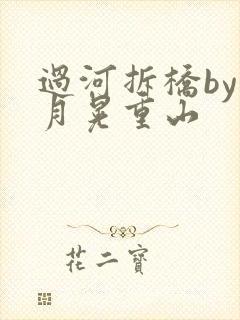 過河拆橋by
月晃重山
花二寶